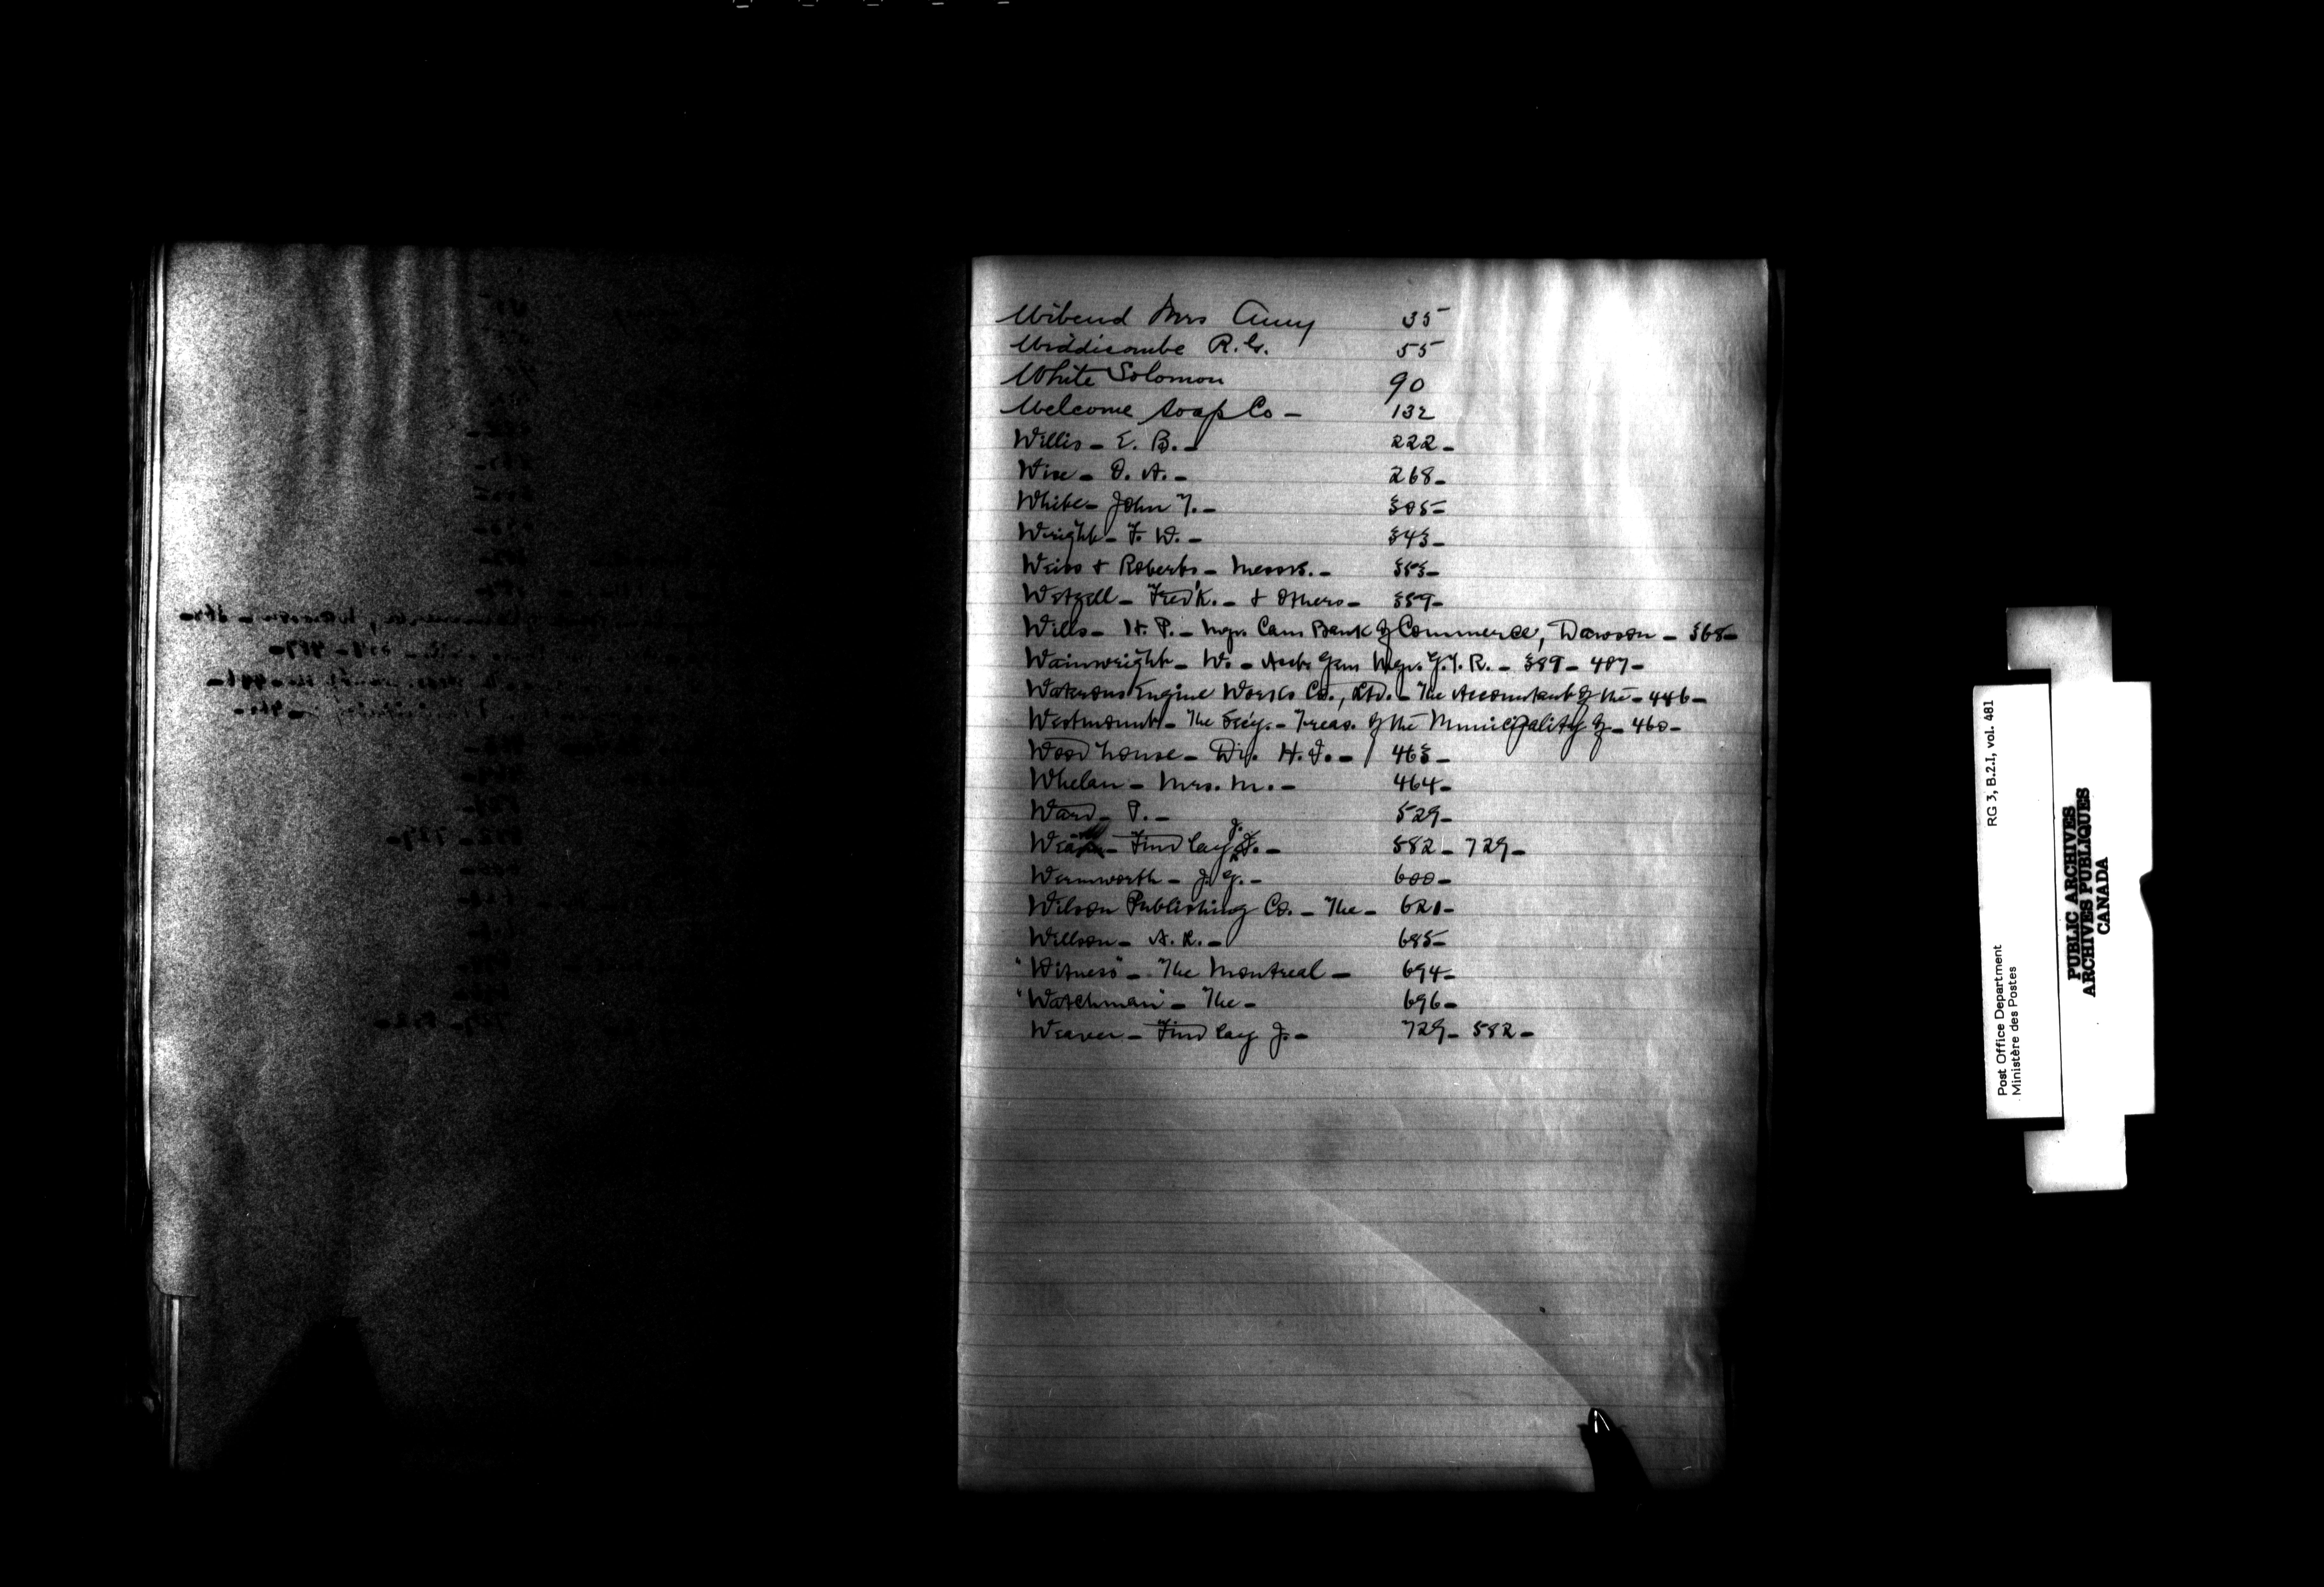 Wibend Mrs Amy 35
Widdicombe R. G. 55
White Solomon 90
Welcome Soap Co - 132
Willis - E. B. - 222 -
Wise - O. A. - 268 -
White - John T. - 305 -
Wright - F. W. - 343 -
Weiss & Roberts - Messrs. - 353 -
Wetzell - Fred'k. - & Others - 359 -
Wills - H. P. - Mgr. Can Bank of Commerce, Dawson - 368 -
Wainwright - W. - Asst. Gen Mgr. G. T. R. - 389 - 407 -
Waterous Engine Works Co., Ltd. - The Accountant of the - 446 -
Westmount - The Sec'y. - Treas. of the Municipality of - 460 -
Woodhouse - Dr. H. F. - 463 -
Whelan - Mrs. M. - 464 -
Ward - P. - 529 -
Findlay J. - 582 - 729 -
Wermworth - J. G. - 600 -
Wilson Publishing Co. - The - 621 -
Willson - A. R. - 685 -
"Witness" - The Montreal - 694 -
"Watchman" - The - 696 -
Weaver - Findlay J. - 729 - 582 -
RG 3, B.2.I, vol. 481
Post Office Department
Ministère des Postes
PUBLIC ARCHIVES
ARCHIVES PUBLIQUES
CANADA